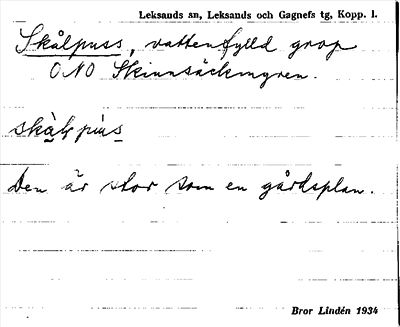 Leksands sn, Leksands och Gagnefs tg, Kopp. l.
Skålpuss, vattenfylld grop
ONO Skinnsäckmyren.
skàlpùs
Den är stor som en gårdsplan.
Bror Lindén 1934